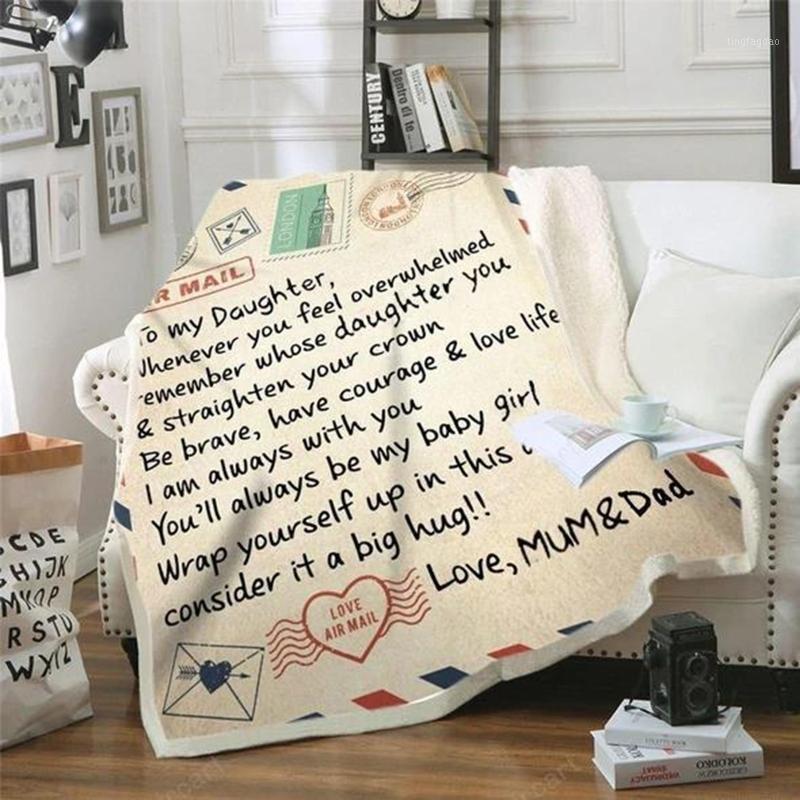 tingfagdao
E
CENTURY
Dentro di te
LONDON
R MAIL
To my Daughter,
Whenever you feel overwhelmed
remember whose daughter you
& straighten your crown
Be brave, have courage & love life
I am always with you
You'll always be my baby girl
Wrap yourself up in this
consider it a big hug!!
Love, MUM&Dad
LOVE
AIR MAIL
CDE
GHIJK
MNOP
RSTU
WXYZ
GRZEGORZ
KOŁODKO